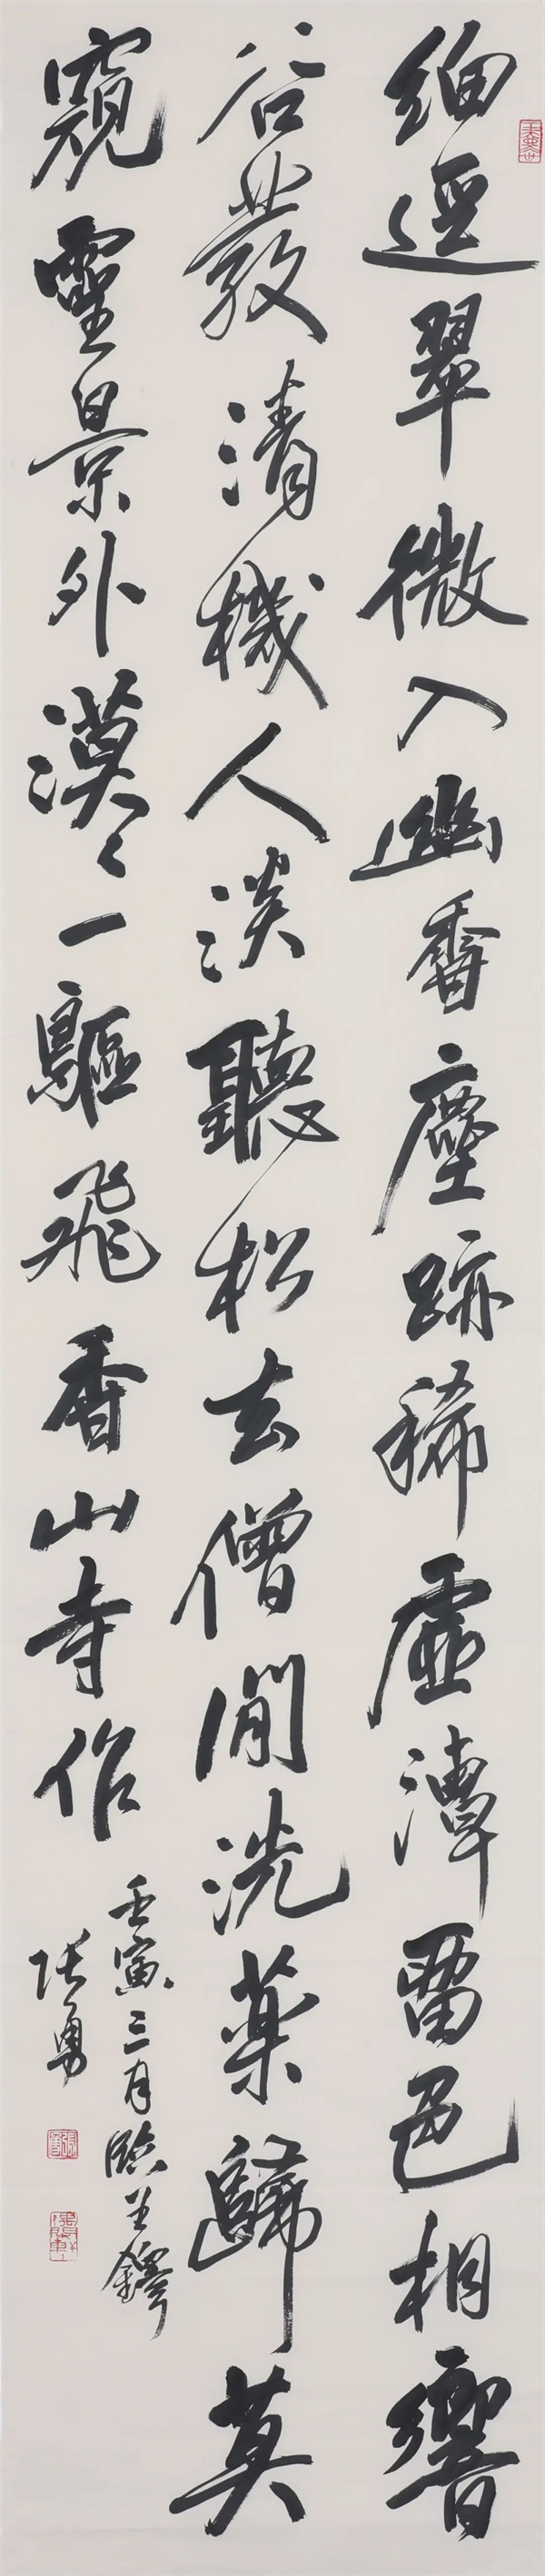 細逕翠微入幽香塵跡稀虛潭留色相響
谷發清機人淡聽松去僧閒洗藥歸莫
窺靈景外漠〻一驅飛香山寺作
壬寅三月臨王鐸
張勇